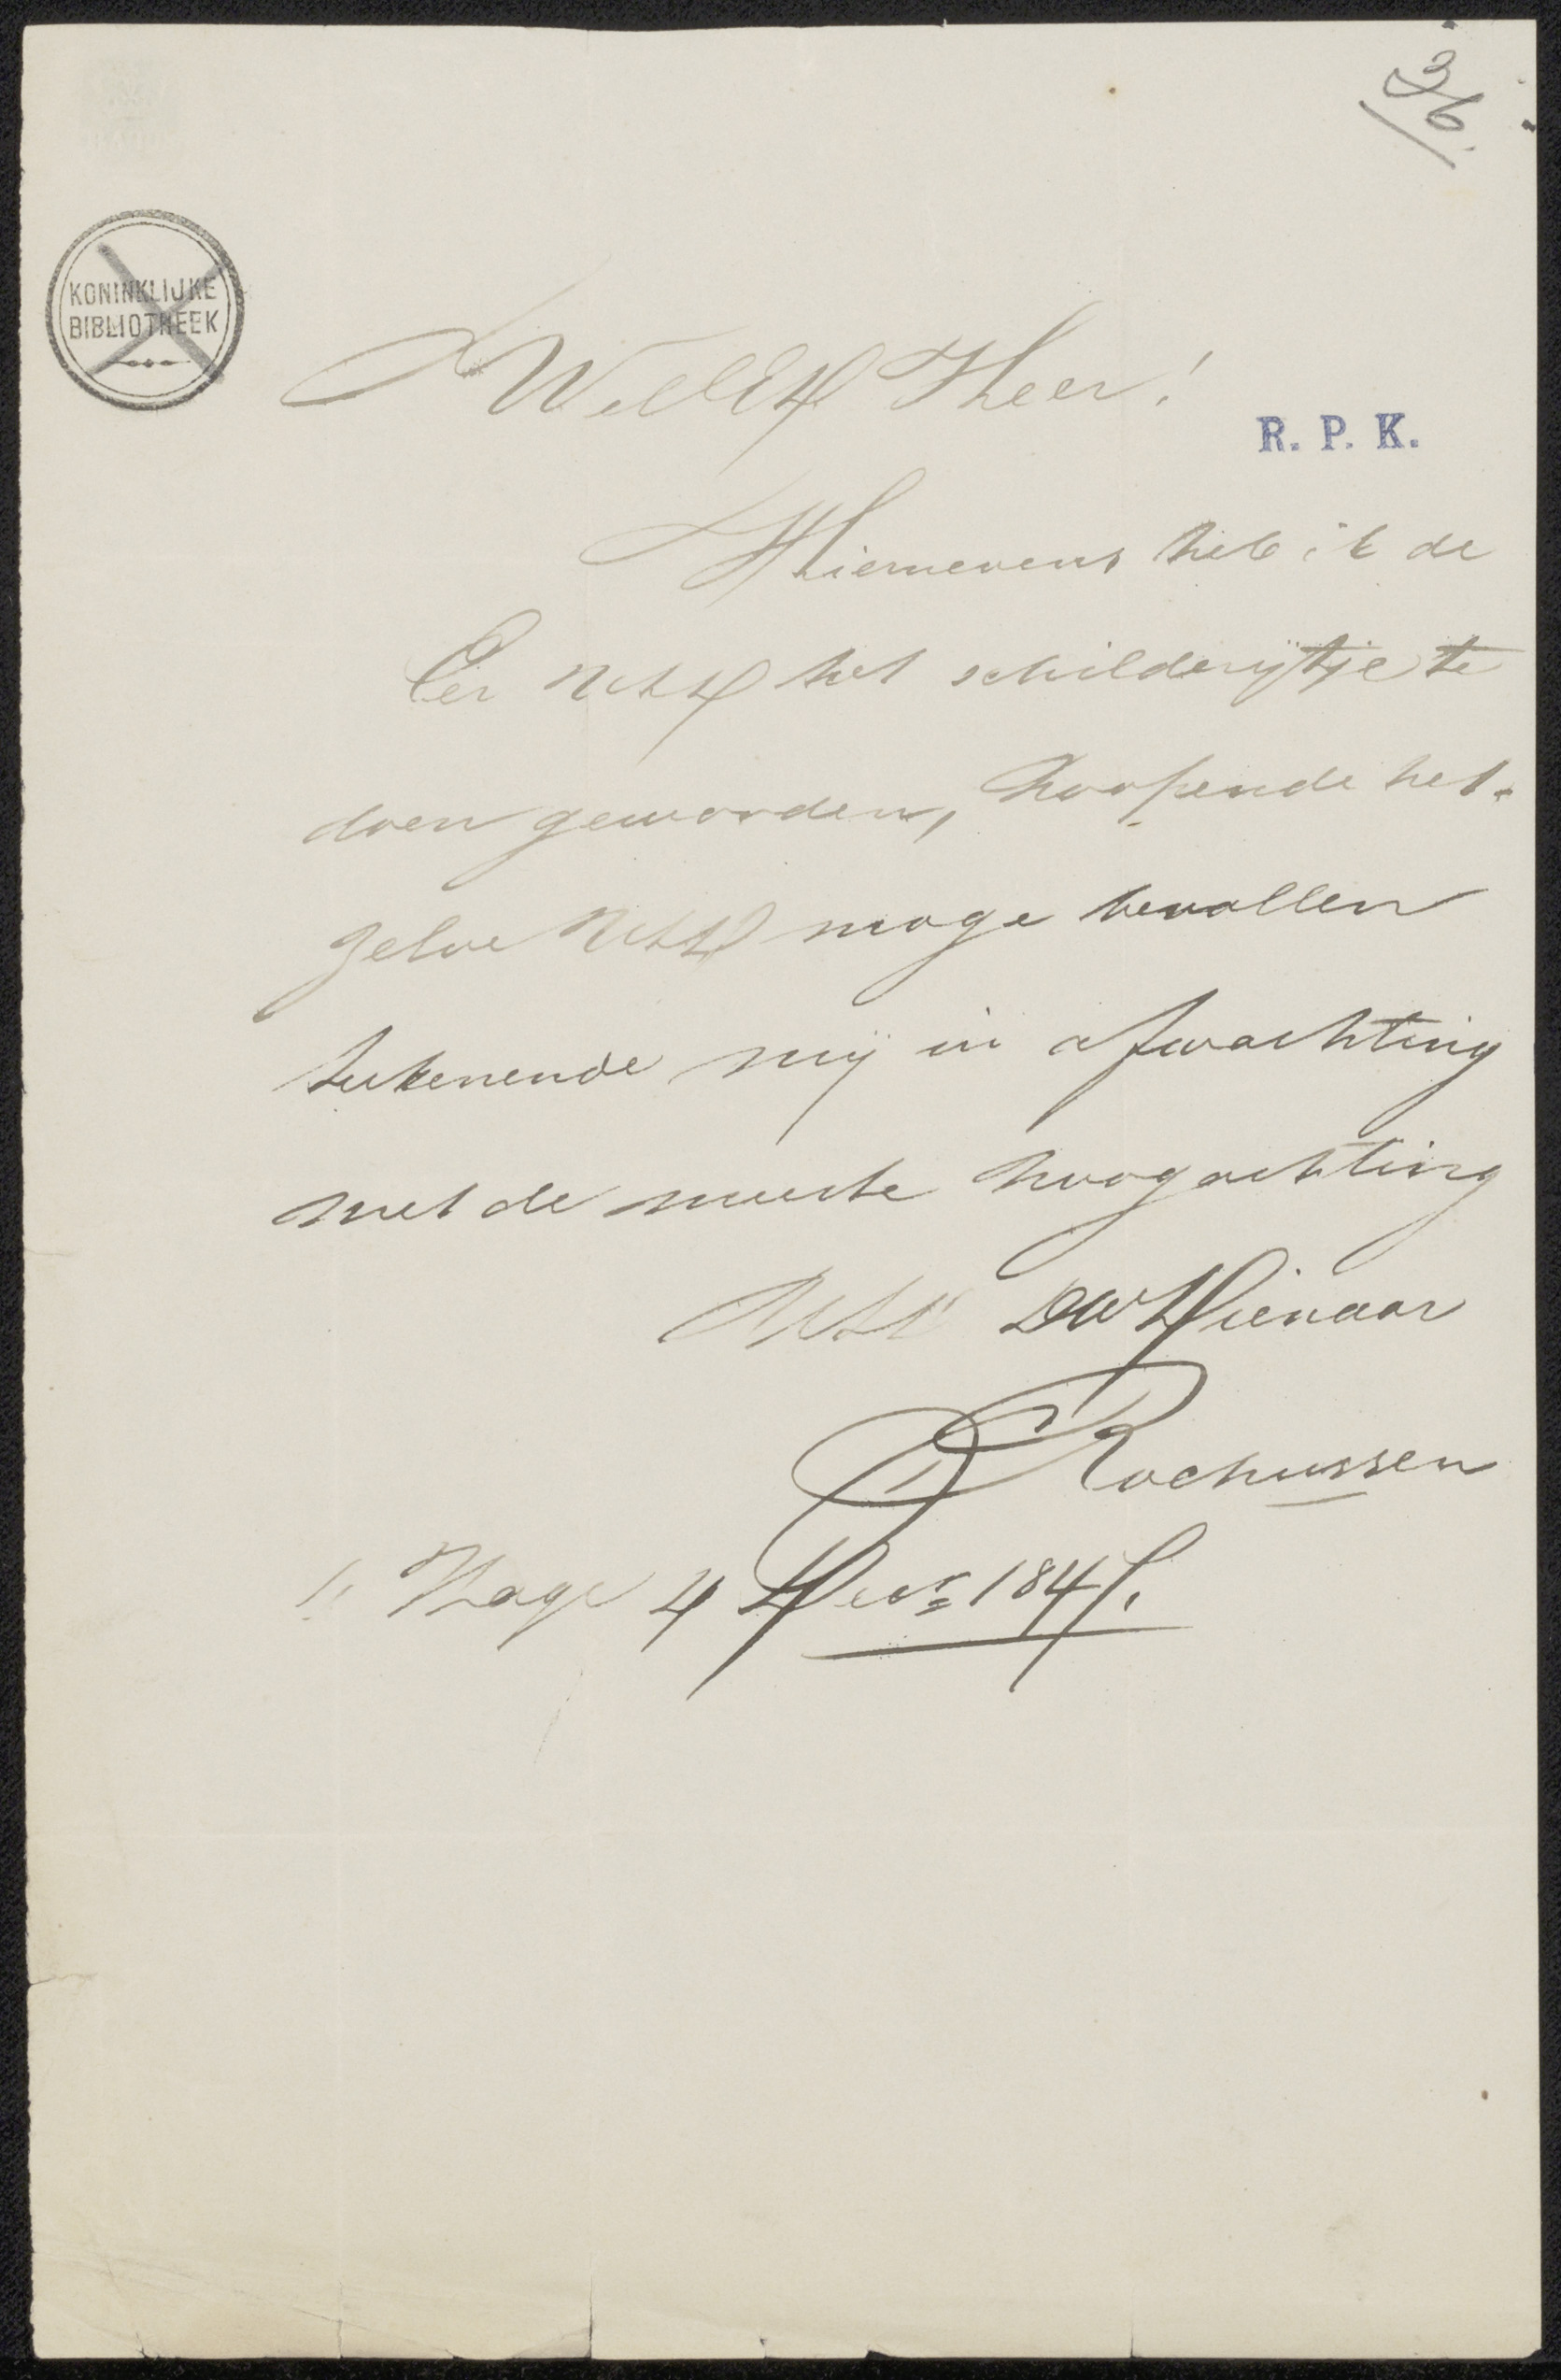 36.
KONINKLIJKE
BIBLIOTHEEK
WelEd Heer!
R. P. K.
Hiernevens heb ik de
Eer UEd het schilderijtje te
doen geworden, hoopende het-
zelve UEd moge bevallen
tekenende mij in afwachting
met de meeste hoogachting
UEd DWDienaar
Rochussen
's Hage 4 Decr 184